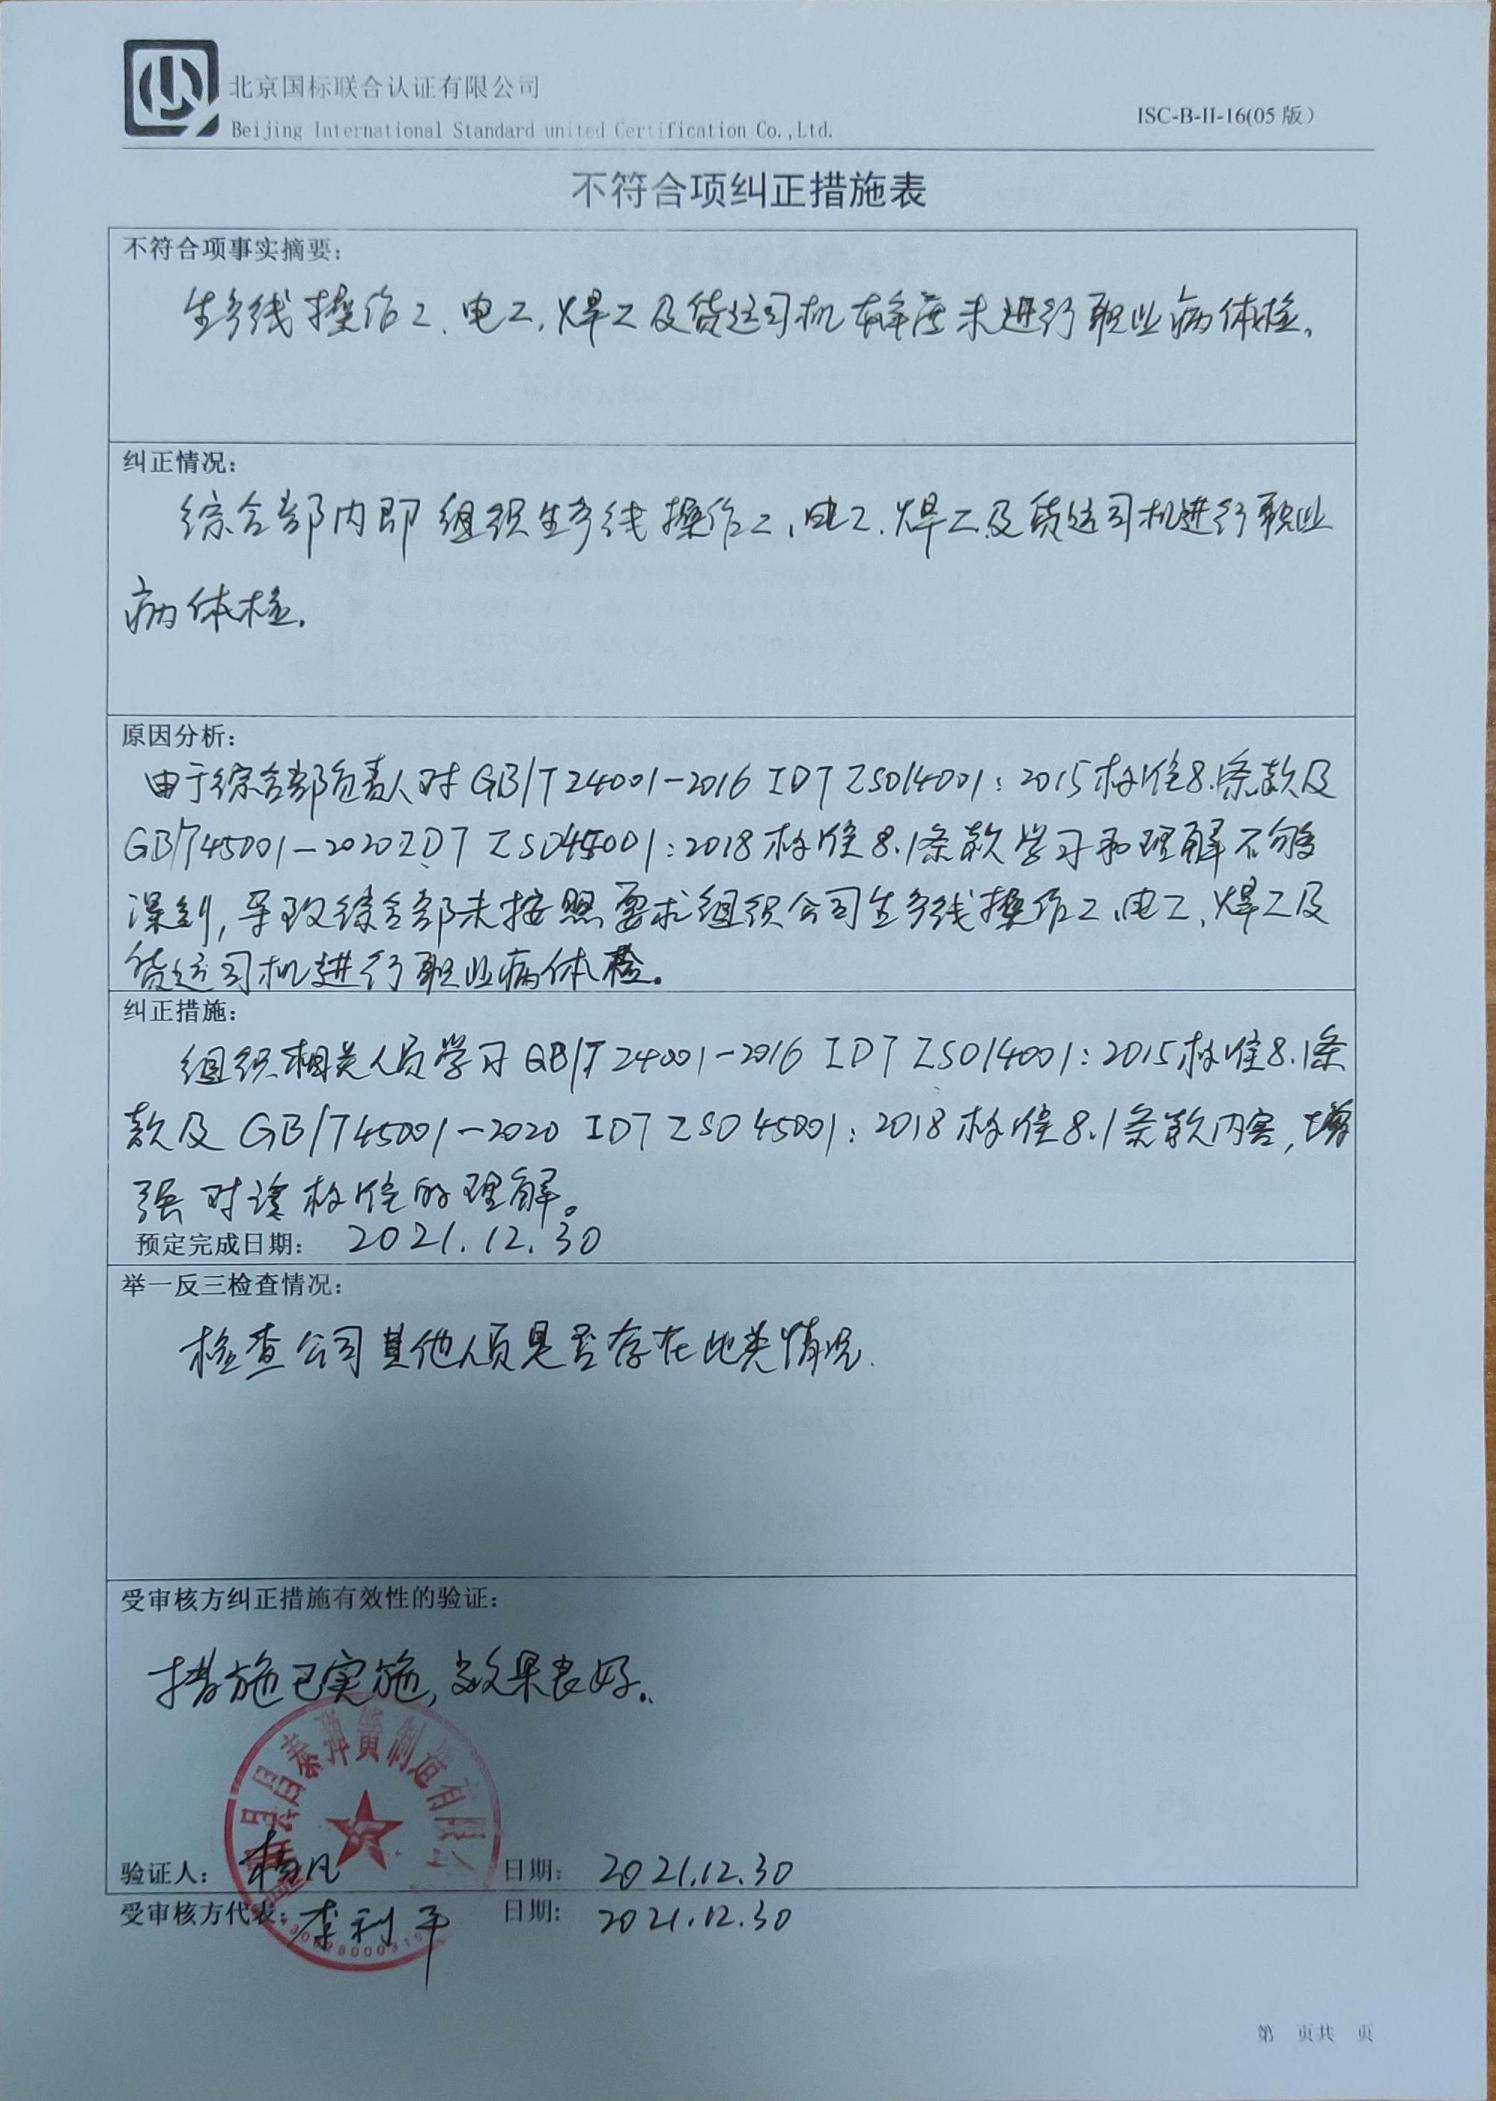 北京国标联合认证有限公司
Beijing International Standard united Certification Co.,Ltd.
ISC-B-II-16(05版)
不符合项纠正措施表
不符合项事实摘要：
生产线操作工、电工、焊工及货运司机本年度未进行职业病体检。
纠正情况：
综合部内即组织生产线操作工、电工、焊工及货运司机进行职业
病体检。
原因分析：
由于综合部负责人对GB/T24001-2016 IDT ISO14001:2015标准8.1条款及
GB/T45001-2020 IDT ISO45001:2018标准8.1条款学习和理解不够
深刻，导致综合部未按照要求组织公司生产线操作工、电工、焊工及
货运司机进行职业病体检。
纠正措施：
组织相关人员学习GB/T24001-2016 IDT ISO14001:2015标准8.1条
款及GB/T45001-2020 IDT ISO45001:2018标准8.1条款内容，增
强对该标准的理解。
预定完成日期： 2021.12.30
举一反三检查情况：
检查公司其他人员是否存在此类情况.
受审核方纠正措施有效性的验证：
措施已实施，效果良好。
县昌泰弹簧制造有限公
验证人： 杨凡 日期： 2021.12.30
受审核方代表： 李利平 日期： 2021.12.30
第 页共 页